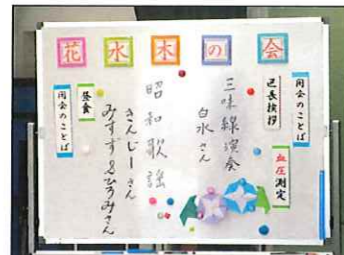 花水木の会
開会のことば
区長挨拶
血圧測定
三味線演奏
白水さん
昭和歌謡
きんじーさん
みすず&ひろみさん
昼食
閉会のことば